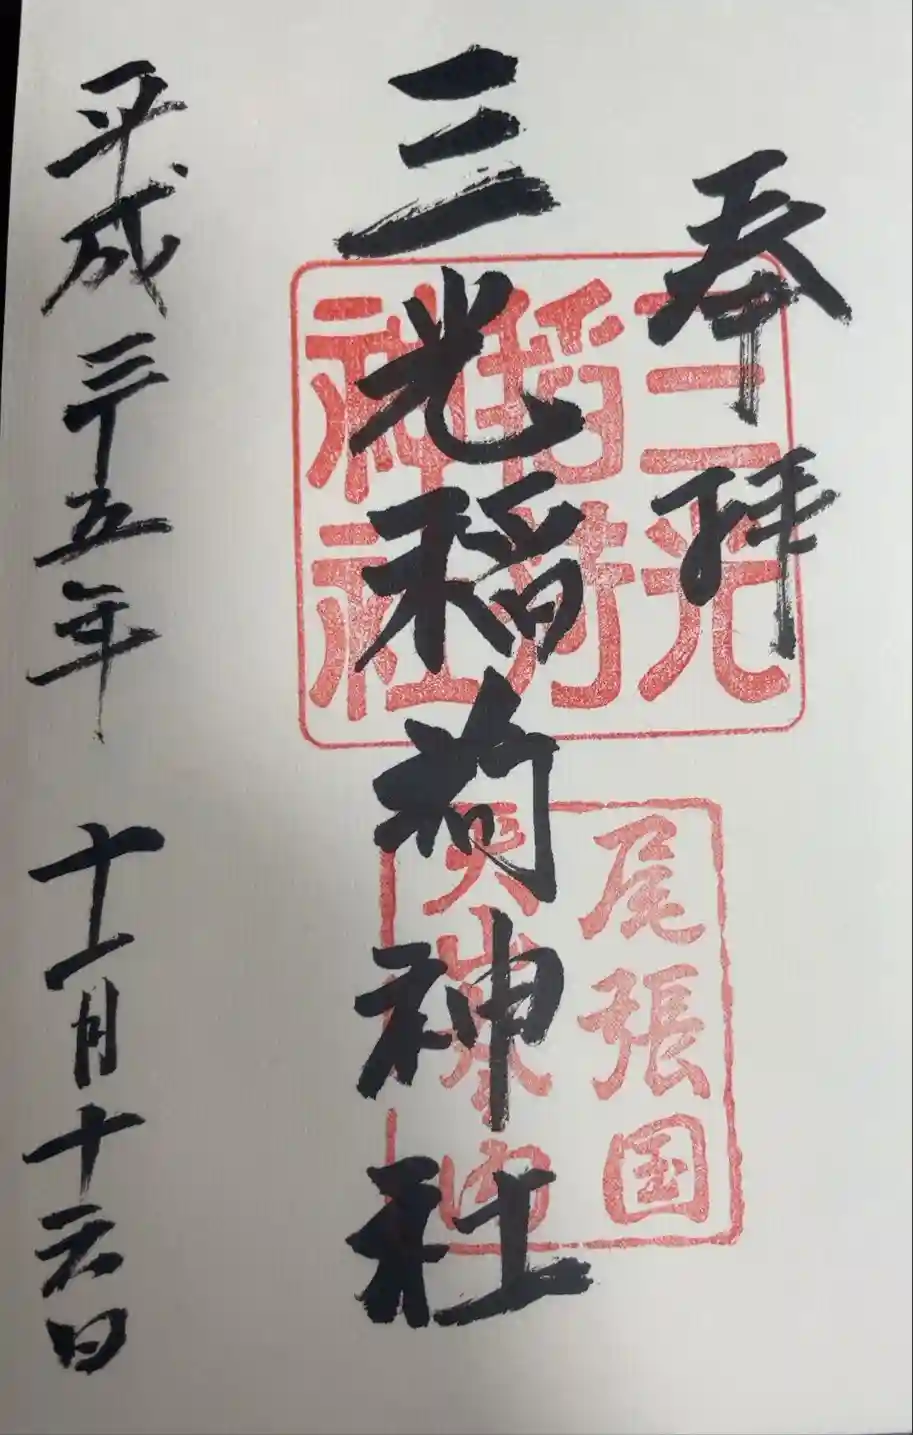 奉拝
三光稲荷神社
平成二十五年 十一月十六日
三光
稲荷
神社
尾張国
犬山 内